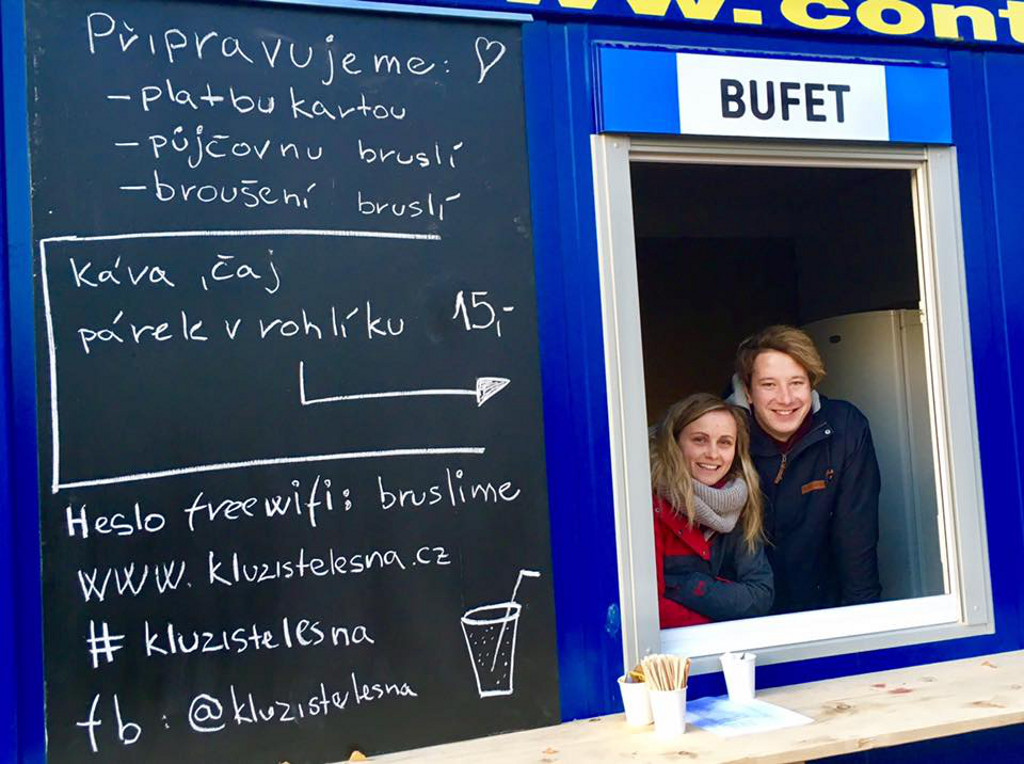 Připravujeme:
- platbu kartou
- půjčovnu bruslí
- broušení bruslí
Káva, čaj
párek v rohlíku 15,-
Heslo freewifi: bruslime
www.kluzistelesna.cz
# kluzistelesna
fb: @kluzistelesna
www.cont
BUFET